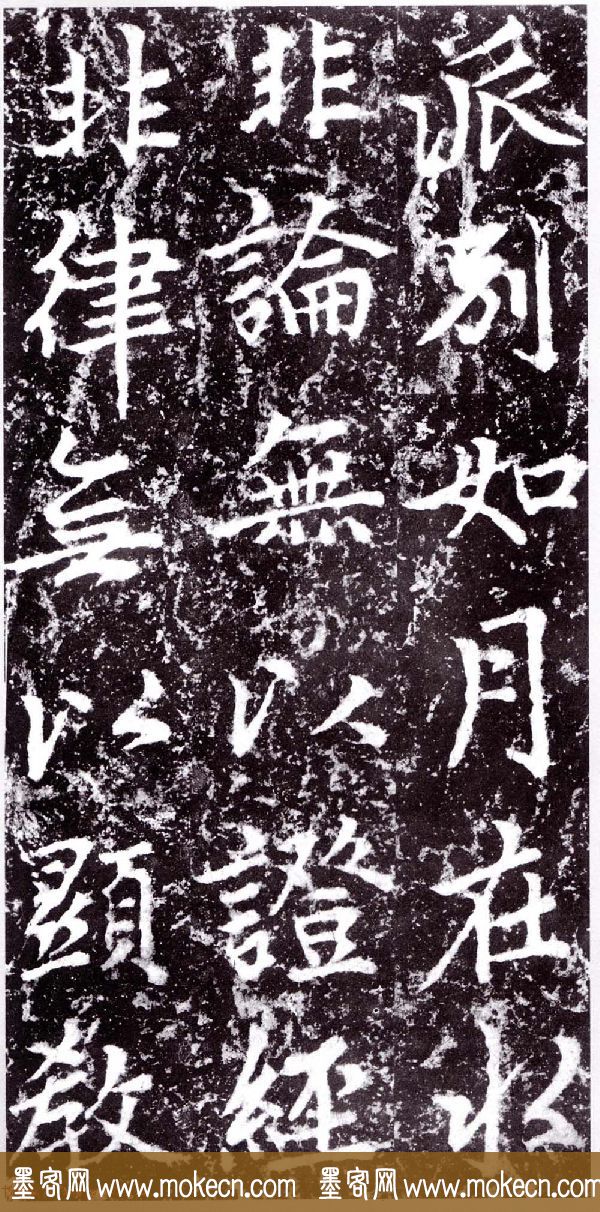 派別如月在水
非論無以證經
非律無以顯教
墨客网 www.mokecn.com 墨客网 www.mokecn.com 墨客网 www.mokecn.com